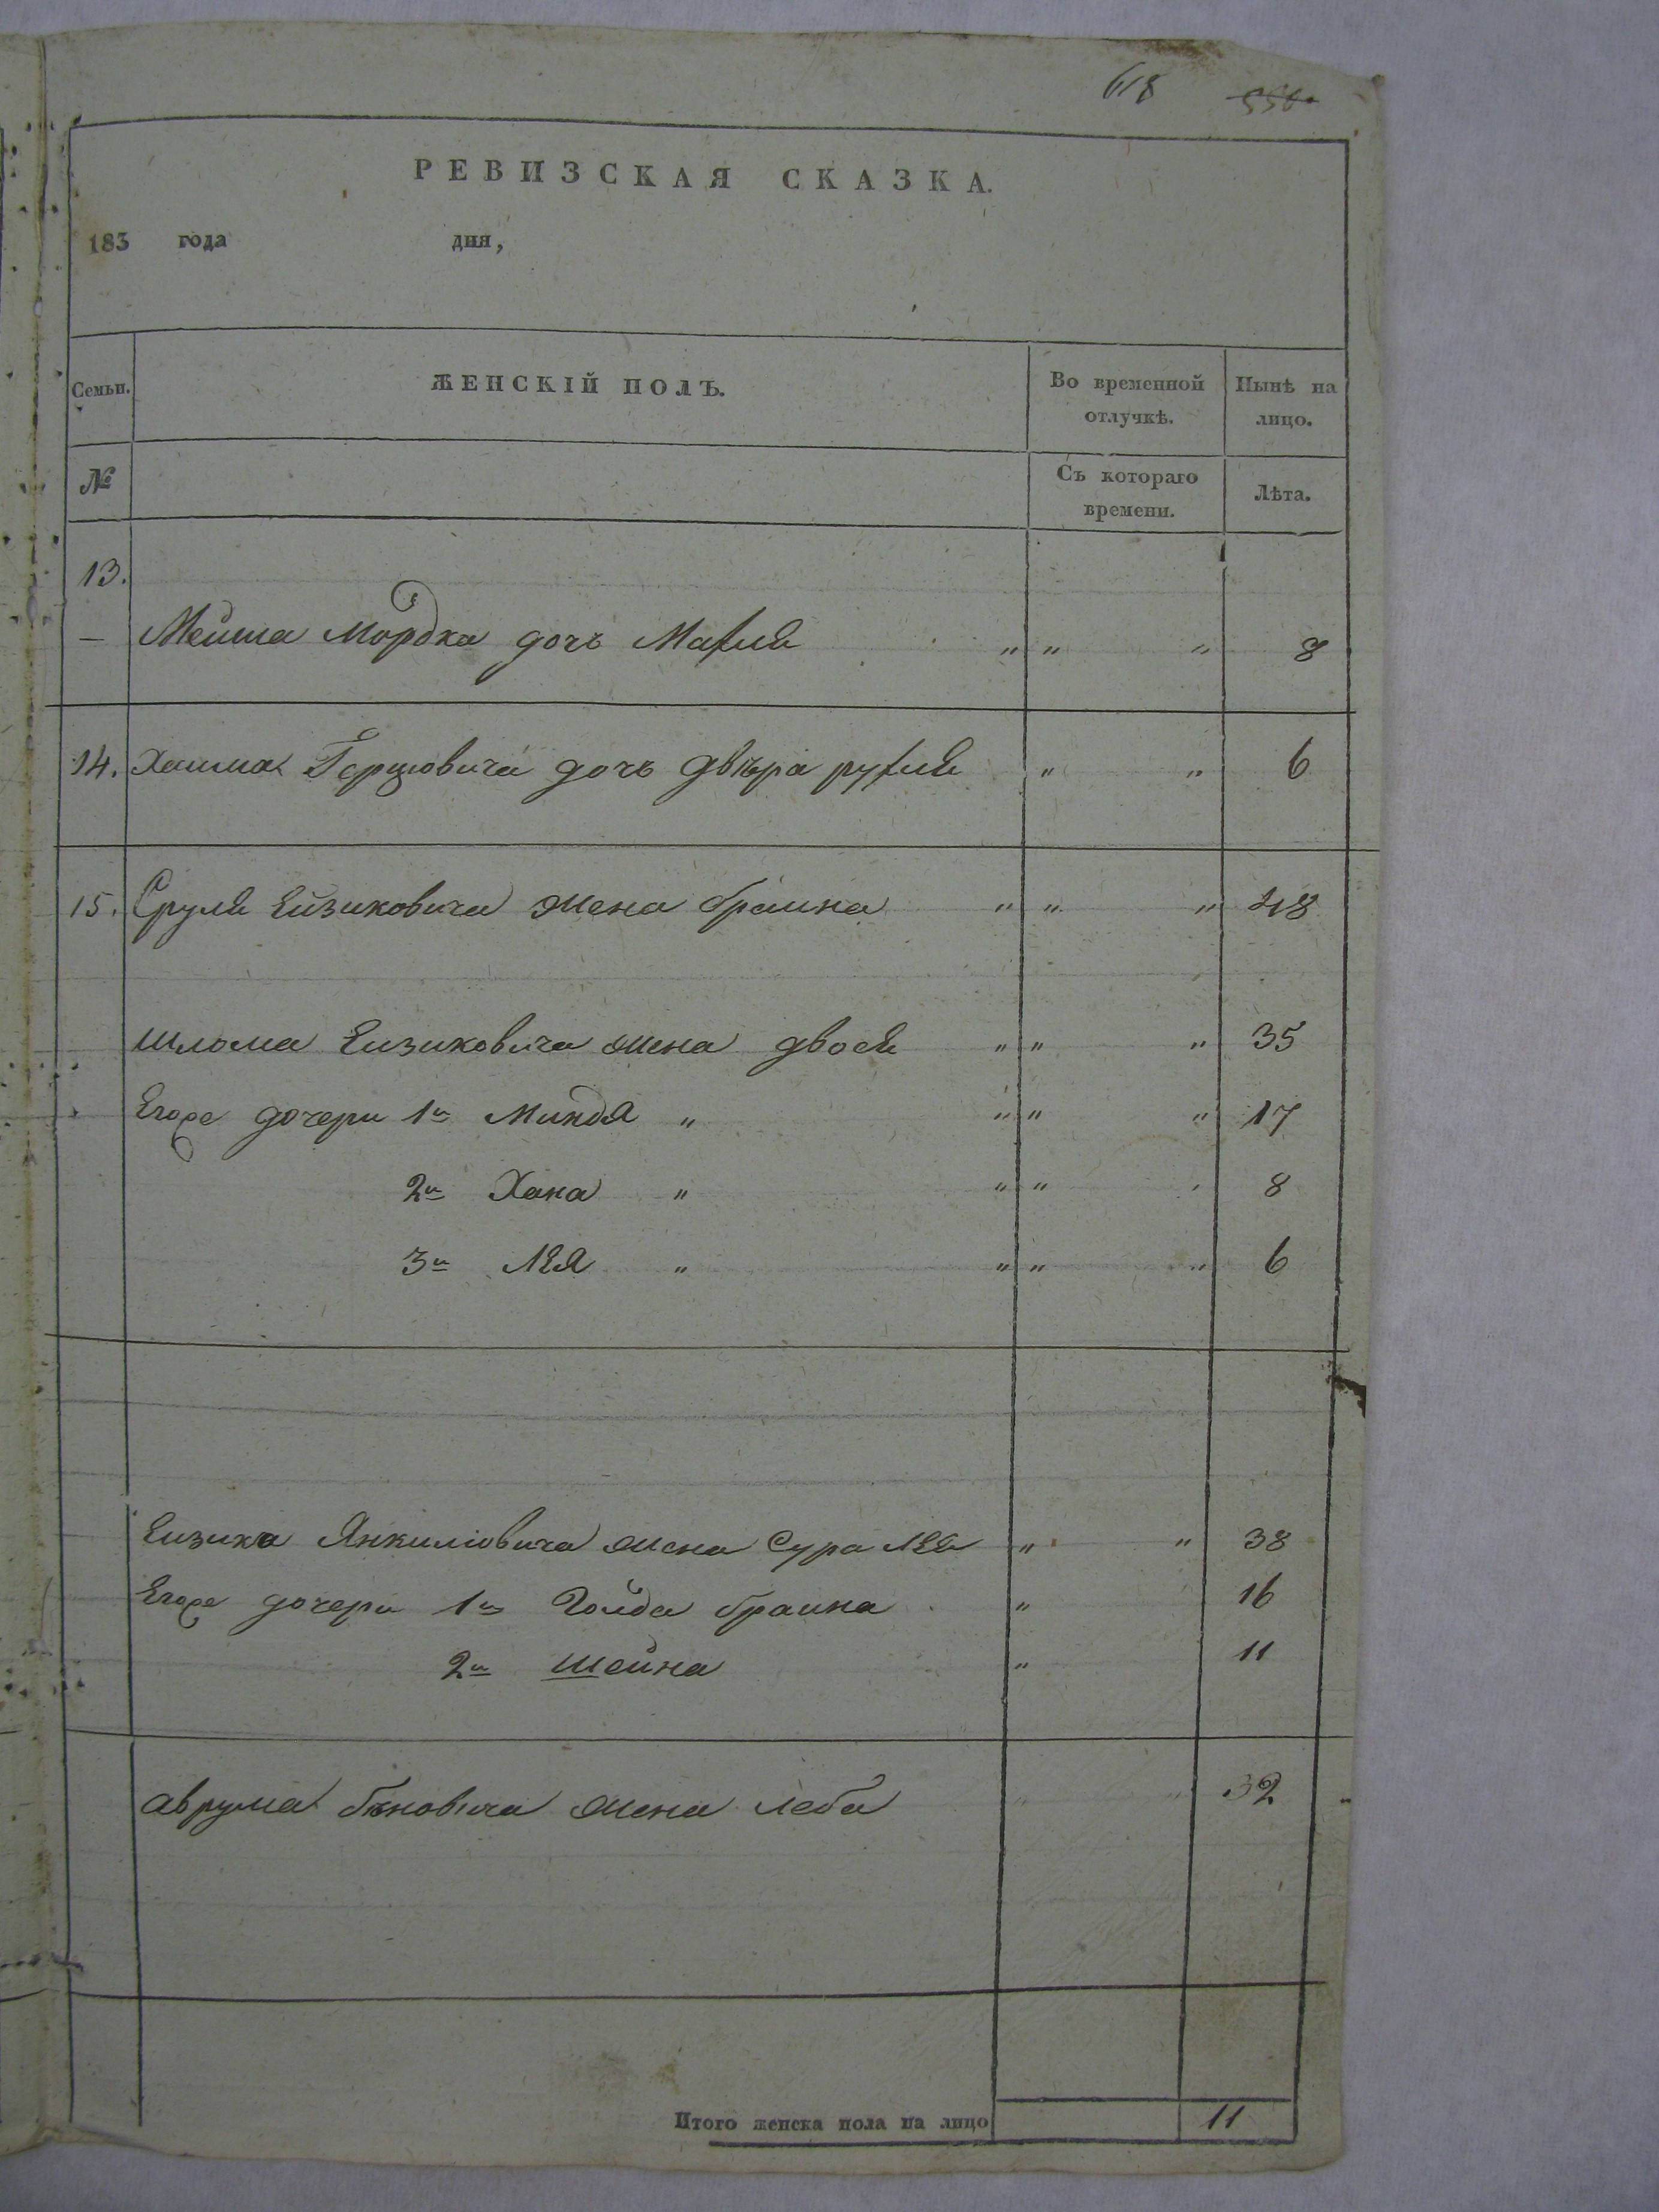 618 550
РЕВИЗСКАЯ СКАЗКА.
183 года дня,
Семьи. ЖЕНСКІЙ ПОЛЪ. Во временной отлучкѣ. Нынѣ на лицо.
№ Съ котораго времени. Лѣта.
13.
— Мейша Мордка дочь Махля " " " 8
14. Хаима Герцовича дочь двѣра рухля " " 6
15. Сруля Ейзиковича жена браина " " " 48
Шлома Еизиковича жена двося " " " 35
Егоже дочери 1я Миндя " " " " 17
2я Хана " " " " 8
3я Лея " " " " 6
Еизика Янкиліовича жена Сура Лея " " 38
Егоже дочери 1я Голда браина " 16
2я шейна " 11
аврума бѣновича жена леба " " 32
Итого женска пола на лицо 11